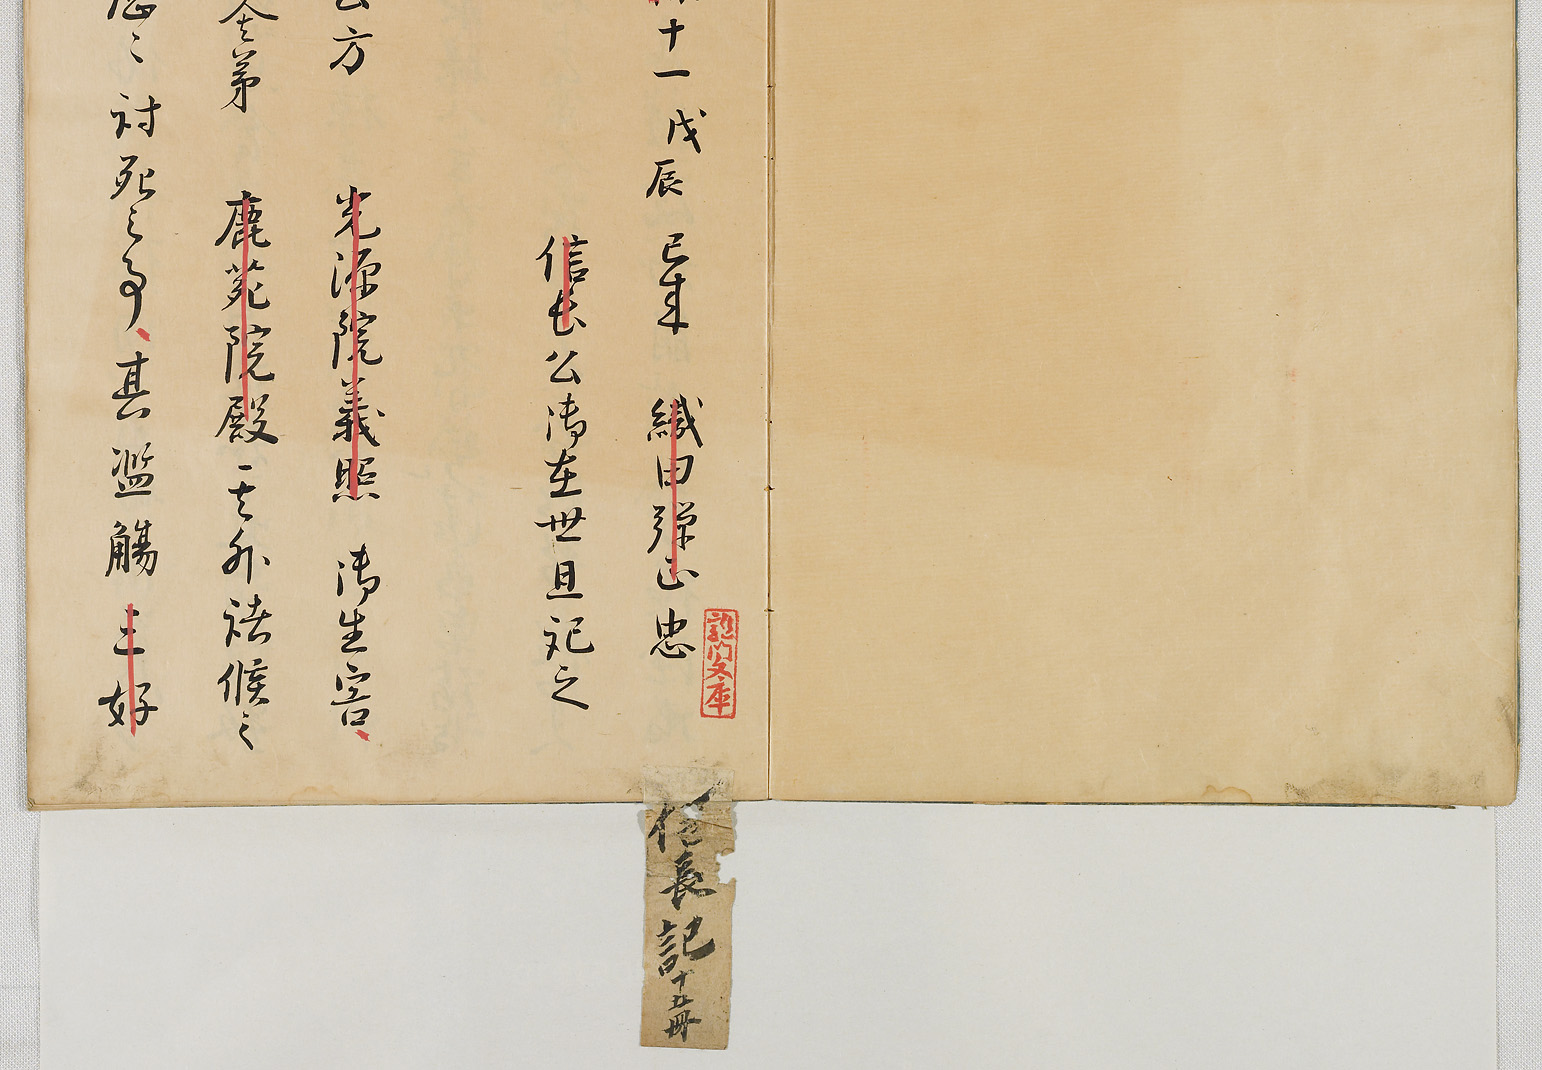 十一戊辰 已来 織田弾正忠
信長公御在世且記之
公方 光源院義照 御生害、
舎弟 鹿苑院殿 其外諸候之
歴々討死之事、其濫觴三好
龍門文庫
信長記十五冊